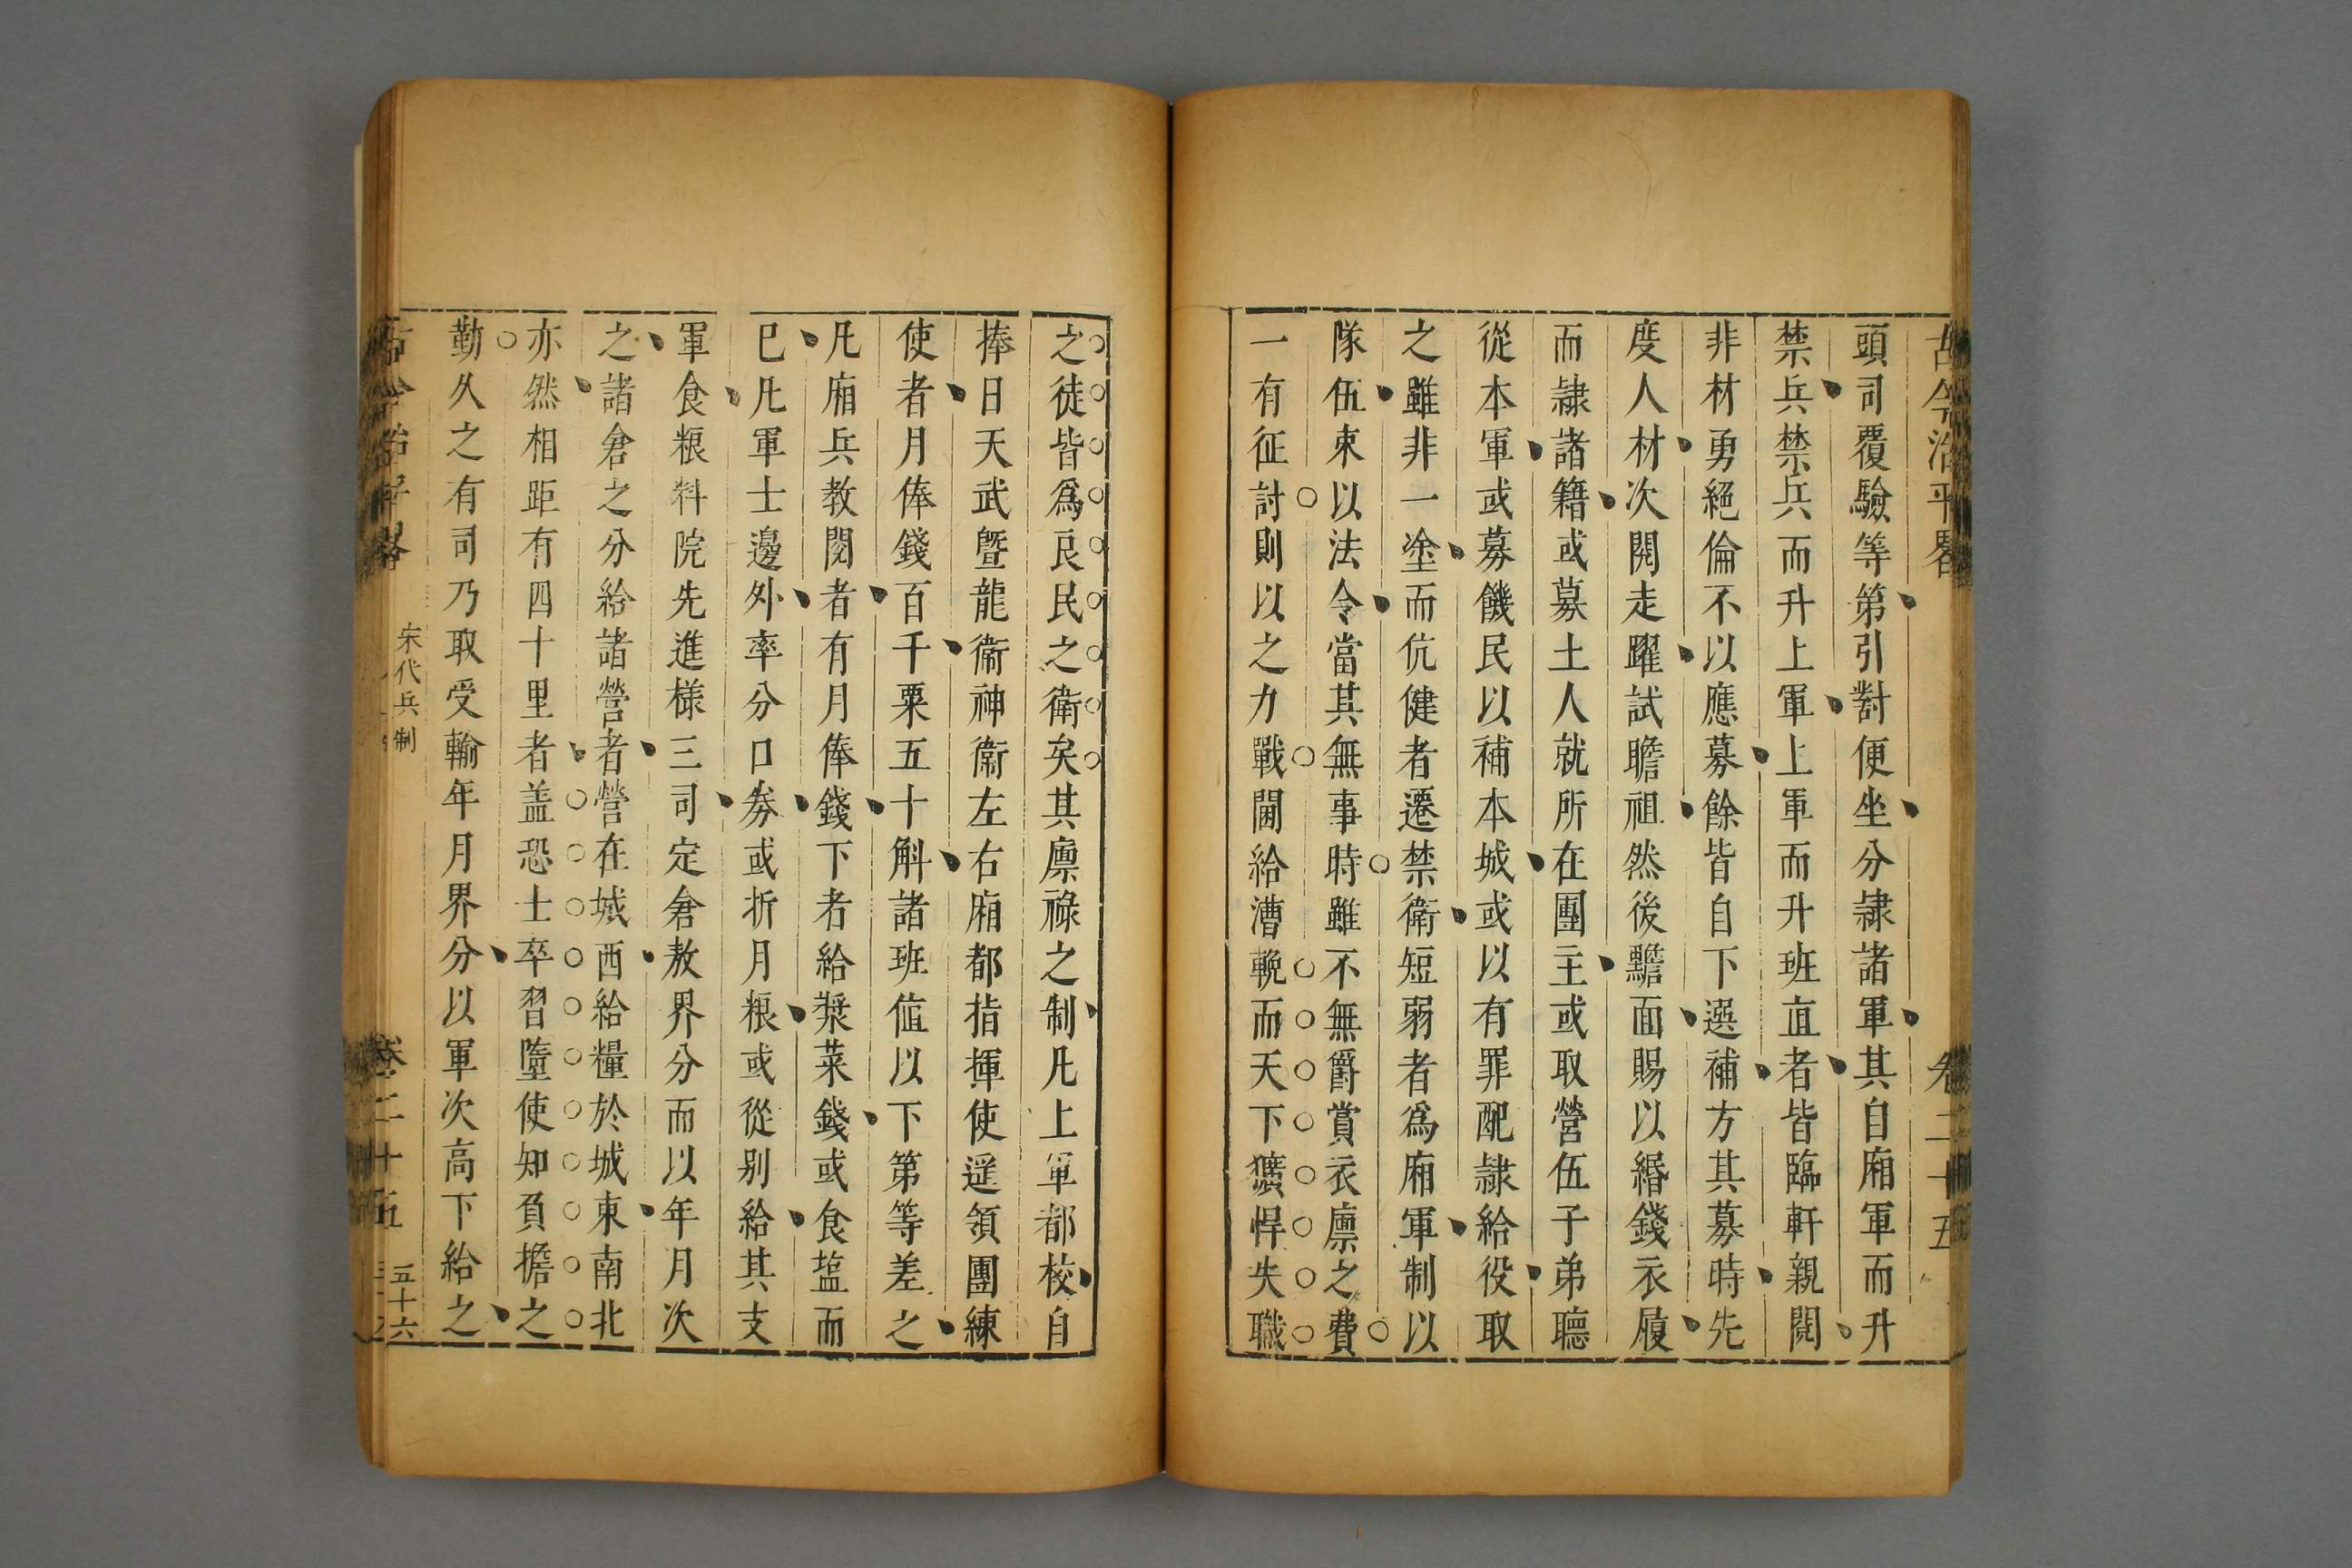 古今治平畧 卷二十五
頭司覆驗等第引對便坐分隷諸軍其自廂軍而升
禁兵禁兵而升上軍上軍而升班直者皆臨軒親閱
非材勇絕倫不以應募餘皆自下選補方其募時先
度人材次閱走躍試瞻視然後黵面賜以緡錢衣履
而隷諸籍或募土人就所在團主或取營伍子弟聽
從本軍或募饑民以補本城或以有罪配隷給役取
之雖非一塗而伉健者遷禁衛短弱者爲廂軍制以
隊伍束以法令當其無事時雖不無爵賞衣廪之費
一有征討則以之力戰鬪給漕輓而天下獷悍失職
之徒皆爲良民之衛矣其廪祿之制凡上軍都校自
捧日天武曁龍衞神衞左右廂都指揮使遥領團練
使者月俸錢百千粟五十斛諸班值以下第等差之
凡廂兵教閱者有月俸錢下者給漿菜錢或食塩而
已凡軍士邊外率分口券或折月粮或從别給其支
軍食粮料院先進樣三司定倉敖界分而以年月次
之諸倉之分給諸營者營在城西給糧於城東南北
亦然相距有四十里者盖恐士卒習墮使知負擔之
勤久之有司乃取受輸年月界分以軍次高下給之
古今治平畧 宋代兵制 卷二十五 五十六